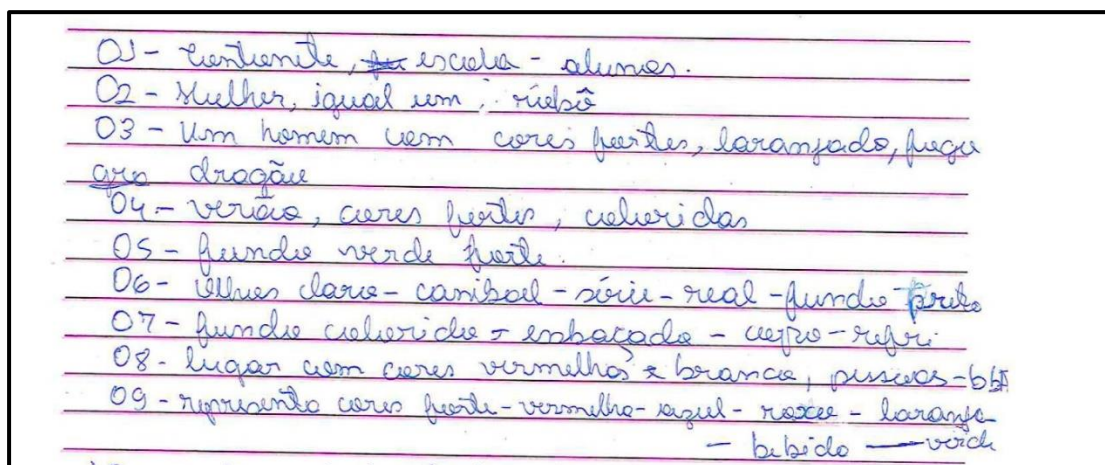 01- contionite, escola - alunos.
02 - Mulher, igual um robô
03 - Um homem com cores fortes, laranjado, fogo
dragão
04 - verão, cores fortes, coloridas
05 - fundo verde forte.
06 - olhos claro - canibal - série - real - fundo preto
07 - fundo colorido - enbaçado - copo - refri
08 - lugar com cores vermelhas e branca, pessoas - bbb
09 - representa cores forte - vermelho - azul - roxo - laranja
- bebida — verde